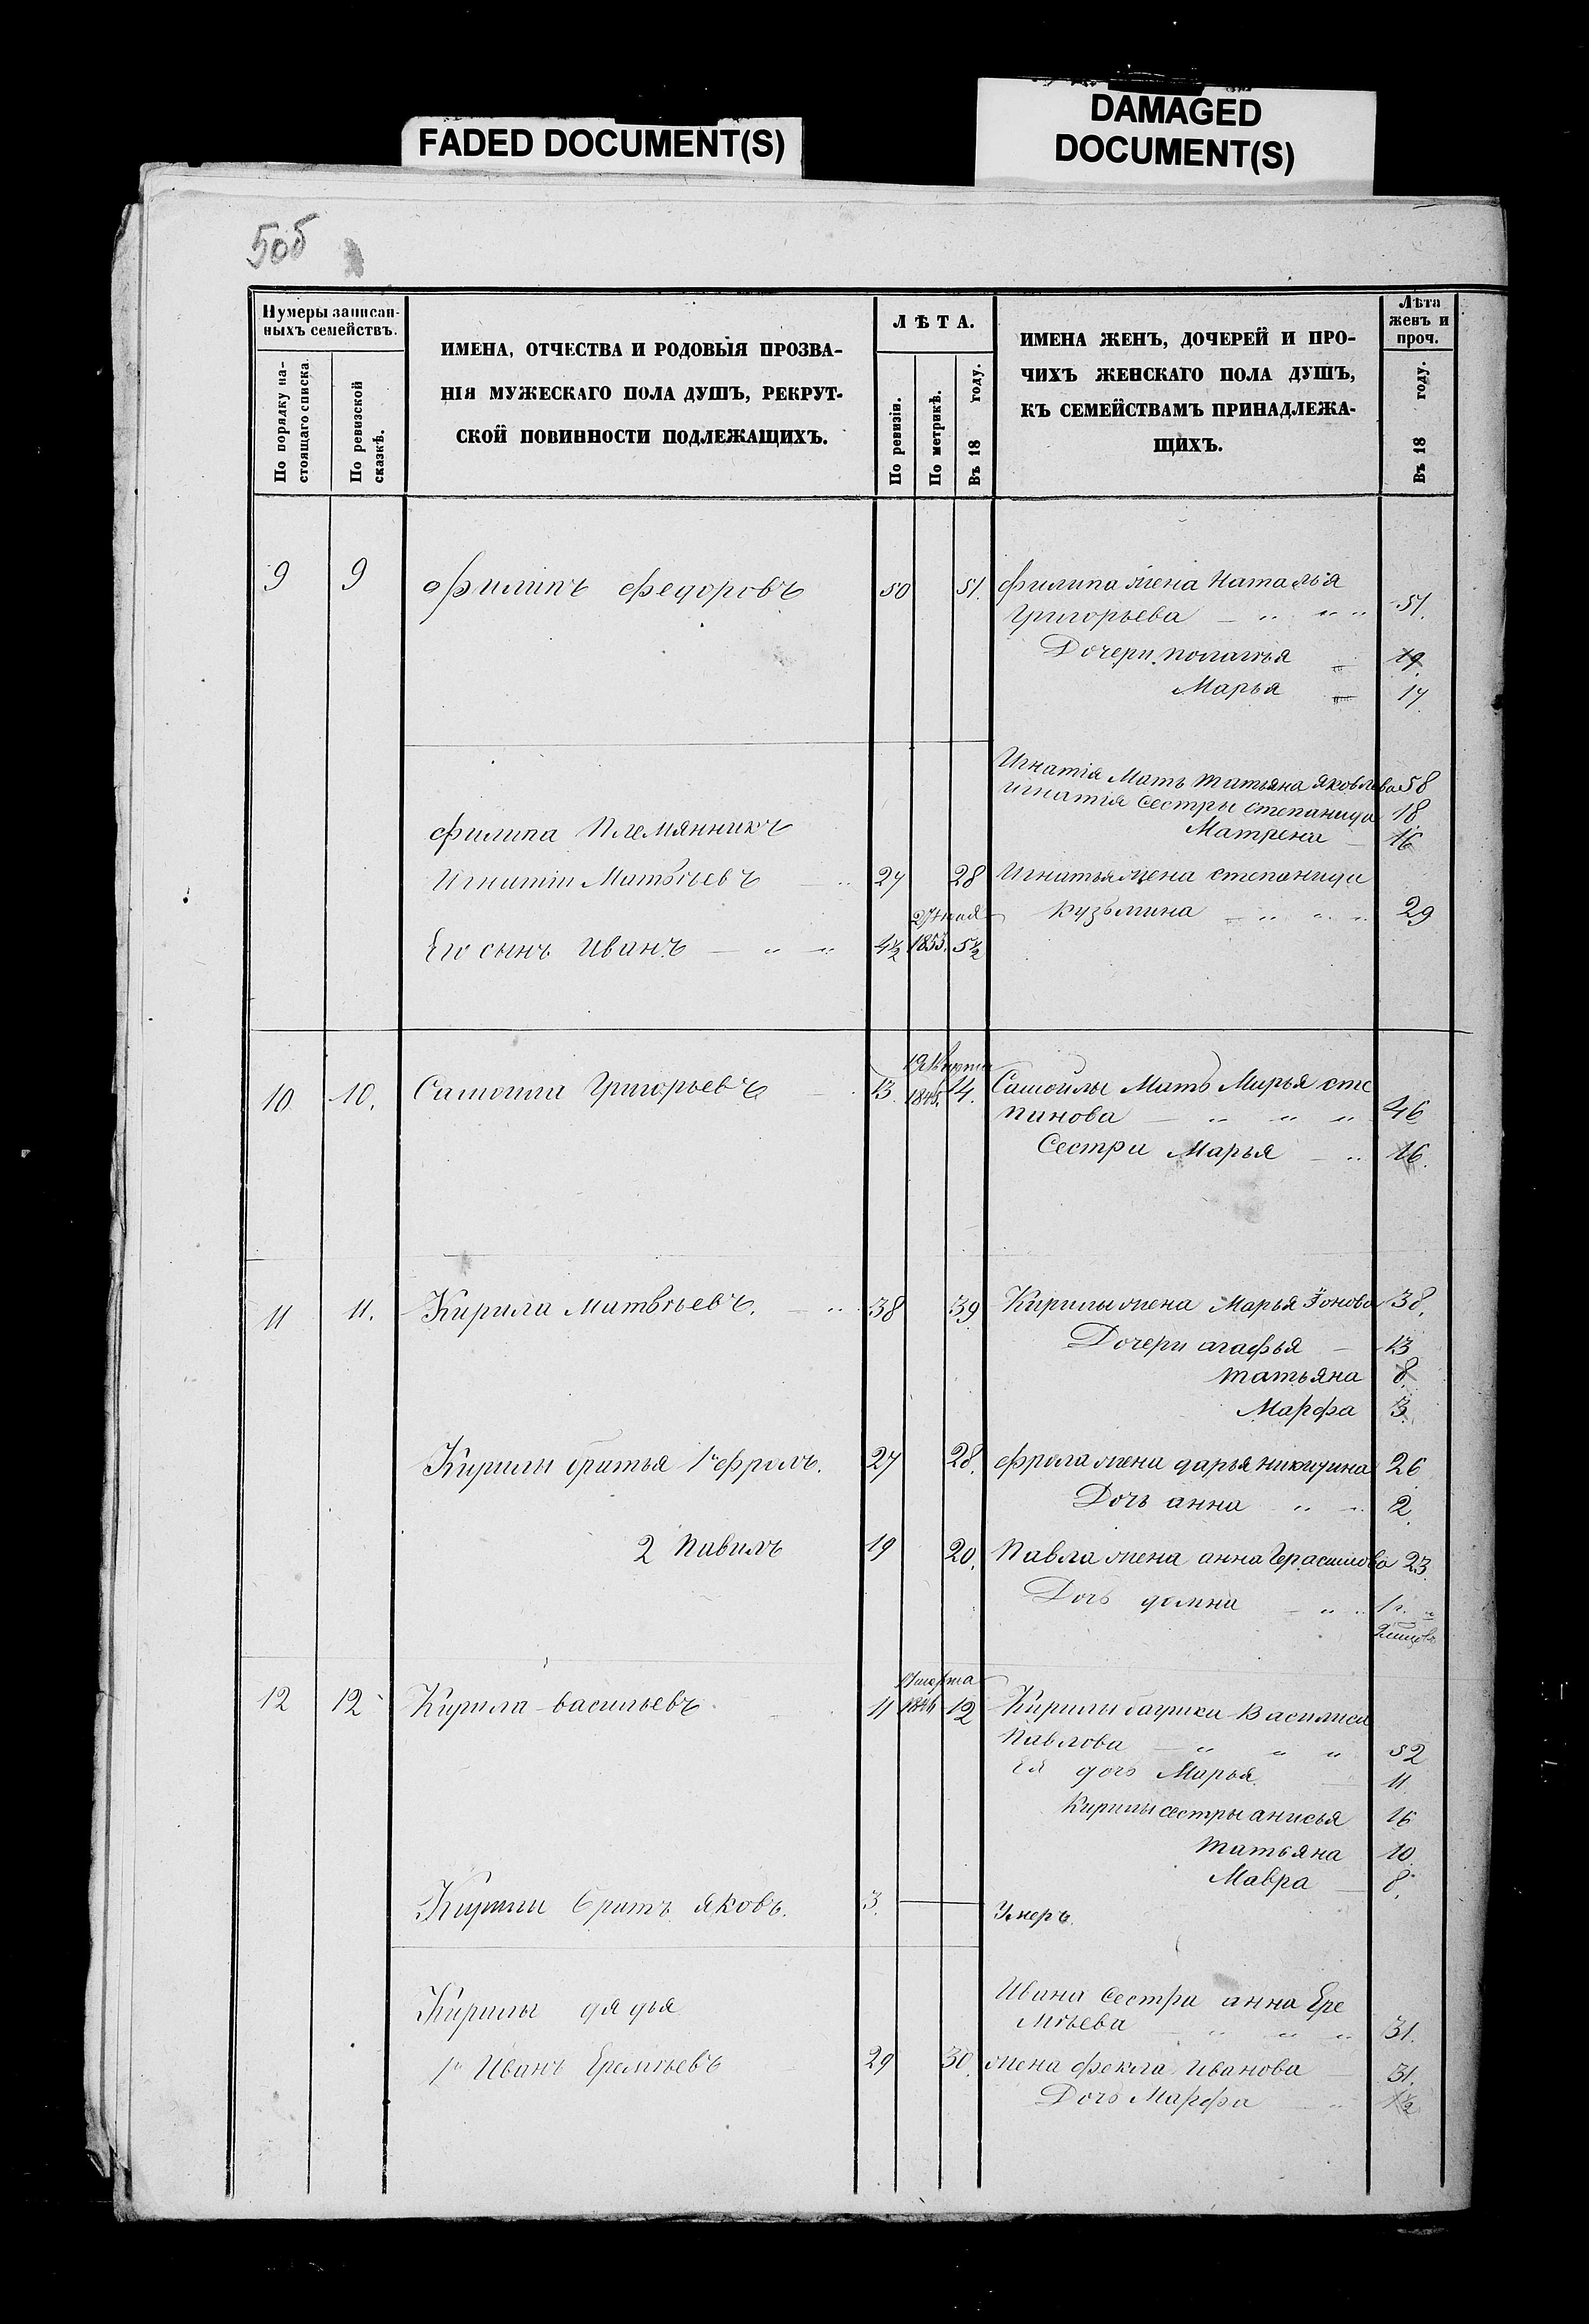 FADED DOCUMENT(S)
DAMAGED
DOCUMENT(S)
50б
Нумеры записан-
ныхъ семействъ.
По порядку на-
стоящаго списка.
По ревизской
сказкѣ.
ИМЕНА, ОТЧЕСТВА И РОДОВЫЯ ПРОЗВА-
НІЯ МУЖЕСКАГО ПОЛА ДУШЪ, РЕКРУТ-
СКОЙ ПОВИННОСТИ ПОДЛЕЖАЩИХЪ.
ЛѢТА.
По ревизіи.
По метрикѣ.
Въ 18 году.
ИМЕНА ЖЕНЪ, ДОЧЕРЕЙ И ПРО-
ЧИХЪ ЖЕНСКАГО ПОЛА ДУШЪ,
КЪ СЕМЕЙСТВАМЪ ПРИНАДЛЕЖА-
ЩИХЪ.
Лѣта
женъ и
проч.
Въ 18 году.
9 9 Филипъ Федоровъ 50 51. Филипа жена Наталья
Григорьева 51.
Дочери Полагья 19
Марья 17
Игнатія Мать Татьяна Яковлева 58
Игнатія сестры Степанида 18
Филипа Племянникъ Матрена 16
Игнатіи Матвѣевъ 27 28 Игнатья жена Степанида
27 мая Кузьмина 29
Его сынъ Иванъ 4½ 1853. 5½
10 10. Самойла Григорьевъ 13 1845. 14. Самойлы Мать Марья Сте
панова 46
Сестра Марья 16.
11 11. Кирила Матвѣевъ. 38 39 Кирилы жена Марья Іонова 38.
Дочери Агафья 13
Татьяна 8
Марфа 3
Кирилы братья 1й Фролъ. 27 28. Фрола жена Дарья Никитина 26
Дочь Анна 2
2 Павилъ 19 20. Павла жена Анна Герасимова 23.
Дочь Домна 1 г.
марта
12 12 Кирила Васильевъ 11 1846 12 Кирилы бабушка Василиса
Павлова 52
Ея дочь Марья 11
Кирилы сестры Анисья 16
Татьяна 10
Мавра 8.
Кирилы братъ Яковъ. 3. Умеръ.
Кирилы дядья Ивана сестра Анна Ере
мѣева 31.
1й Иванъ Еремѣевъ 29 30. Жена Фекла Иванова 31.
Дочь Марфа 1½